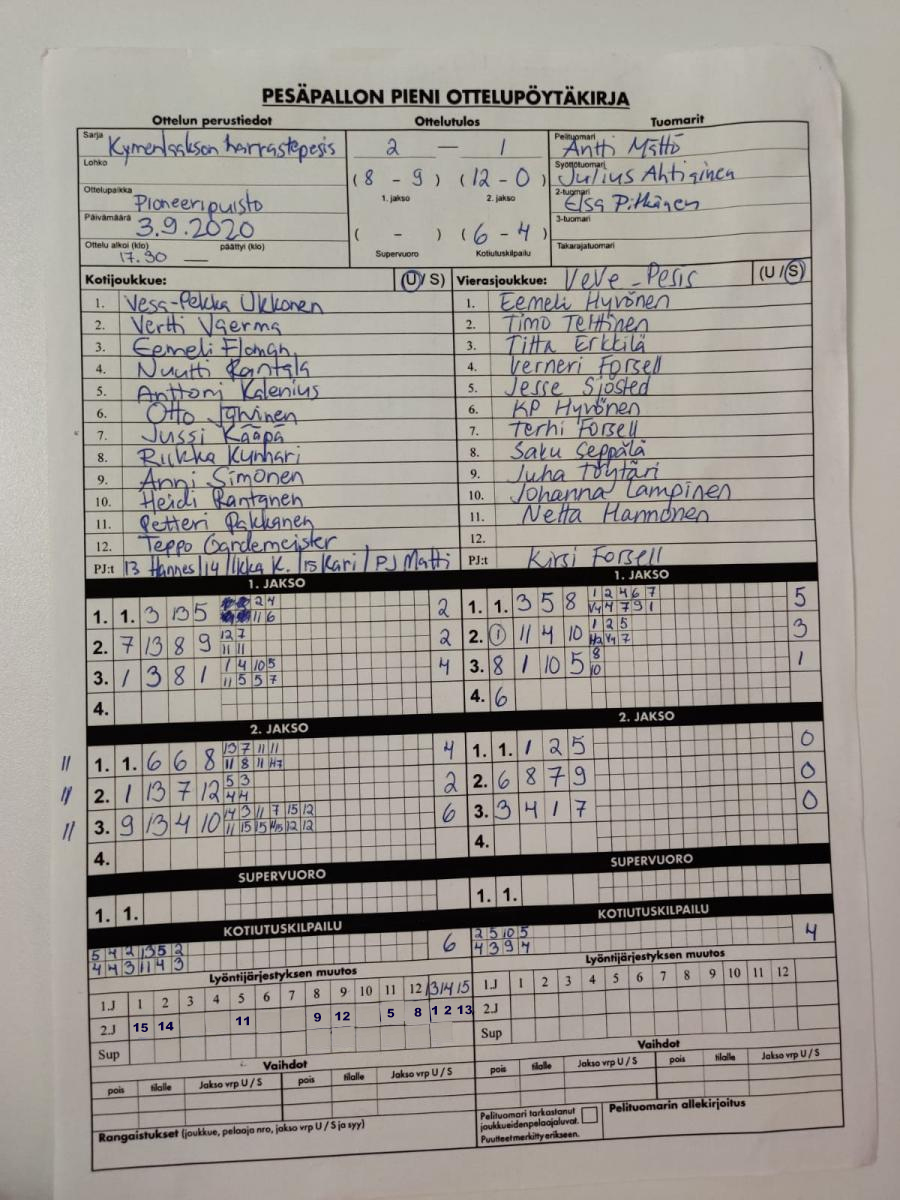 PESÄPALLON PIENI OTTELUPÖYTÄKIRJA
Ottelun perustiedot Ottelutulos Tuomarit
Sarja Kymenlaakson harrastepesis
Lohko
Ottelupaikka Pioneeripuisto
Päivämäärä 3.9.2020
Ottelu alkoi (klo) päättyi (klo)
17.30 —
2 — 1
( 8 - 9 ) ( 12 - 0 )
1. jakso 2. jakso
( - ) ( 6 - 4 )
Supervuoro Kotiutuskilpailu
Pelituomari Antti Mättö
Syöttötuomari Julius Ahtiainen
2-tuomari Elsa Pitkänen
3-tuomari
Takarajatuomari
Kotijoukkue: (U / S) Vierasjoukkue: VeVe-Pesis (U / S)
1. Vesa-Pekka Ukkonen
2. Vertti Vaerma
3. Eemeli Floman
4. Nuutti Rantala
5. Anttoni Kalenius
6. Otto Järvinen
7. Jussi Kääpä
8. Riikka Kynhäri
9. Anni Simonen
10. Heidi Rantanen
11. Petteri Pakkanen
12. Teppo Gardemeister
PJ:t 13 Hannes / 14 Ilkka K. / 15 Kari / PJ Matti
1. Eemeli Hyvönen
2. Timo Terttinen
3. Titta Erkkilä
4. Verneri Forsell
5. Jesse Sjösted
6. KP Hyvönen
7. Terhi Forsell
8. Saku Seppälä
9. Juha Töytäri
10. Johanna Lampinen
11. Netta Hannonen
12.
PJ:t Kirsi Forsell
1. JAKSO 1. JAKSO
1. 1. 3 13 5 2 4 2
11 6
2. 7 13 8 9 12 7 2
11 11
3. 1 3 8 1 1 4 10 5 4
11 5 5 7
4.
1. 1. 3 5 8 1 2 4 6 7 5
V4 4 7 9 1
2. 1 11 4 10 1 2 5 3
H2 V4 7
3. 8 1 10 5 8 1
10
4. 6
2. JAKSO 2. JAKSO
1. 1. 6 6 8 13 7 11 11 4
11 8 11 H7
2. 1 13 7 12 5 3 2
4 4
3. 9 13 4 10 14 3 11 7 15 12 6
11 15 15 12 12
4.
1. 1. 1 2 5 0
2. 6 8 7 9 0
3. 3 4 1 7 0
4.
SUPERVUORO SUPERVUORO
1. 1. 1. 1.
KOTIUTUSKILPAILU KOTIUTUSKILPAILU
5 4 2 13 5 2 6
4 4 3 11 4 3
2 5 10 5 4
4 3 9 4
Lyöntijärjestyksen muutos Lyöntijärjestyksen muutos
1.J 1 2 3 4 5 6 7 8 9 10 11 12 13 14 15
2.J 15 14 11 9 12 5 8 1 2 13
Sup
1.J 1 2 3 4 5 6 7 8 9 10 11 12
2.J
Sup
Vaihdot Vaihdot
pois tilalle Jakso vrp U / S pois tilalle Jakso vrp U / S
pois tilalle Jakso vrp U / S pois tilalle Jakso vrp U / S
Rangaistukset (joukkue, pelaaja nro, jakso vrp U / S ja syy)
Pelituomari tarkastanut
joukkueiden pelaajaluvat.
Puutteet merkitty erikseen.
Pelituomarin allekirjoitus